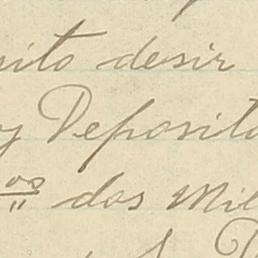 sito desir
y Deposito
os dos Mil